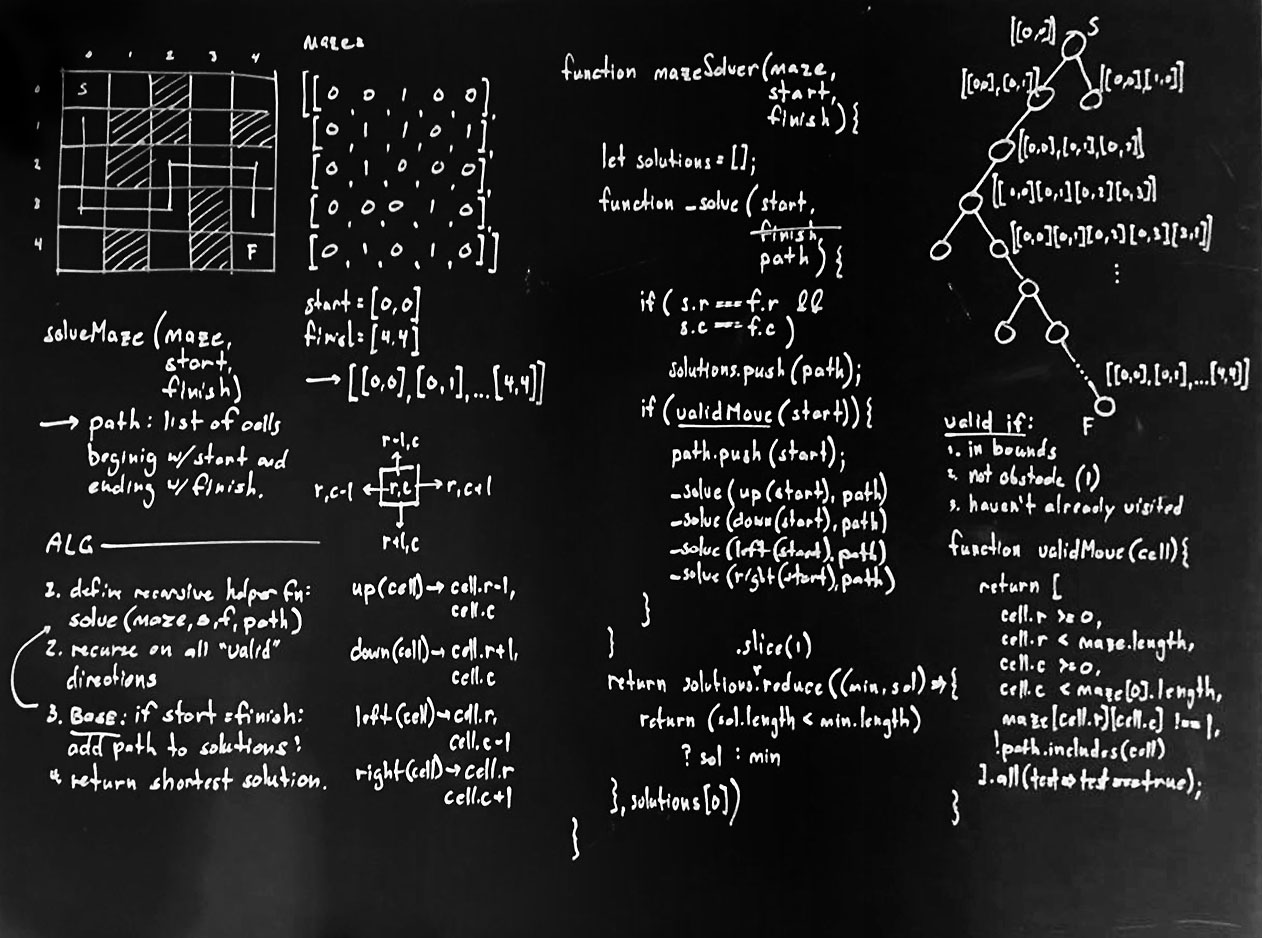 0 1 2 3 4
0
S
1
2
3
4
F
Maze:
[[0, 0, 1, 0, 0],
[0, 1, 1, 0, 1],
[0, 1, 0, 0, 0],
[0, 0, 0, 1, 0],
[0, 1, 0, 1, 0]]
start = [0,0]
final = [4,4]
→ [[0,0],[0,1],...[4,4]]
solveMaze (maze,
start,
finish)
→ path: list of cells
begining w/start and
ending w/ finish.
r-1,c
r,c-1 ← r,c → r,c+1
r+1,c
ALG
1. define recursive helper fn:
solve (maze, s, f, path)
2. recurse on all "valid"
directions
3. BASE: if start = finish:
add path to solutions!
4. return shortest solution.
up(cell) → cell.r-1,
cell.c
down(cell) → cell.r+1,
cell.c
left(cell) → cell.r,
cell.c-1
right(cell) → cell.r
cell.c+1
function mazeSolver(maze,
start,
finish) {
let solutions = [];
function _solve (start,
finish,
path) {
if ( s.r === f.r &&
s.c === f.c )
solutions.push(path);
if (validMove(start)) {
path.push(start);
_solve(up(start), path)
_solve(down(start), path)
_solve(left(start), path)
_solve(right(start), path)
}
}
.slice(1)
return solutions.reduce((min, sol) => {
return (sol.length < min.length)
? sol : min
}, solutions[0])
}
[[0,0]] S
[[0,0],[0,1]]
[[0,0],[1,0]]
[[0,0],[0,1],[0,2]]
[[0,0][0,1][0,2][0,3]]
[[0,0][0,1][0,2][0,3][2,1]]
⋮
[[0,0],[0,1],...[4,4]]
F
valid if:
1. in bounds
2. not obstacle (1)
3. haven't already visited
function validMove(cell) {
return [
cell.r >= 0,
cell.r < maze.length,
cell.c >= 0,
cell.c < maze[0].length,
maze[cell.r][cell.c] !== 1,
!path.includes(cell)
].all(test => test === true);
}